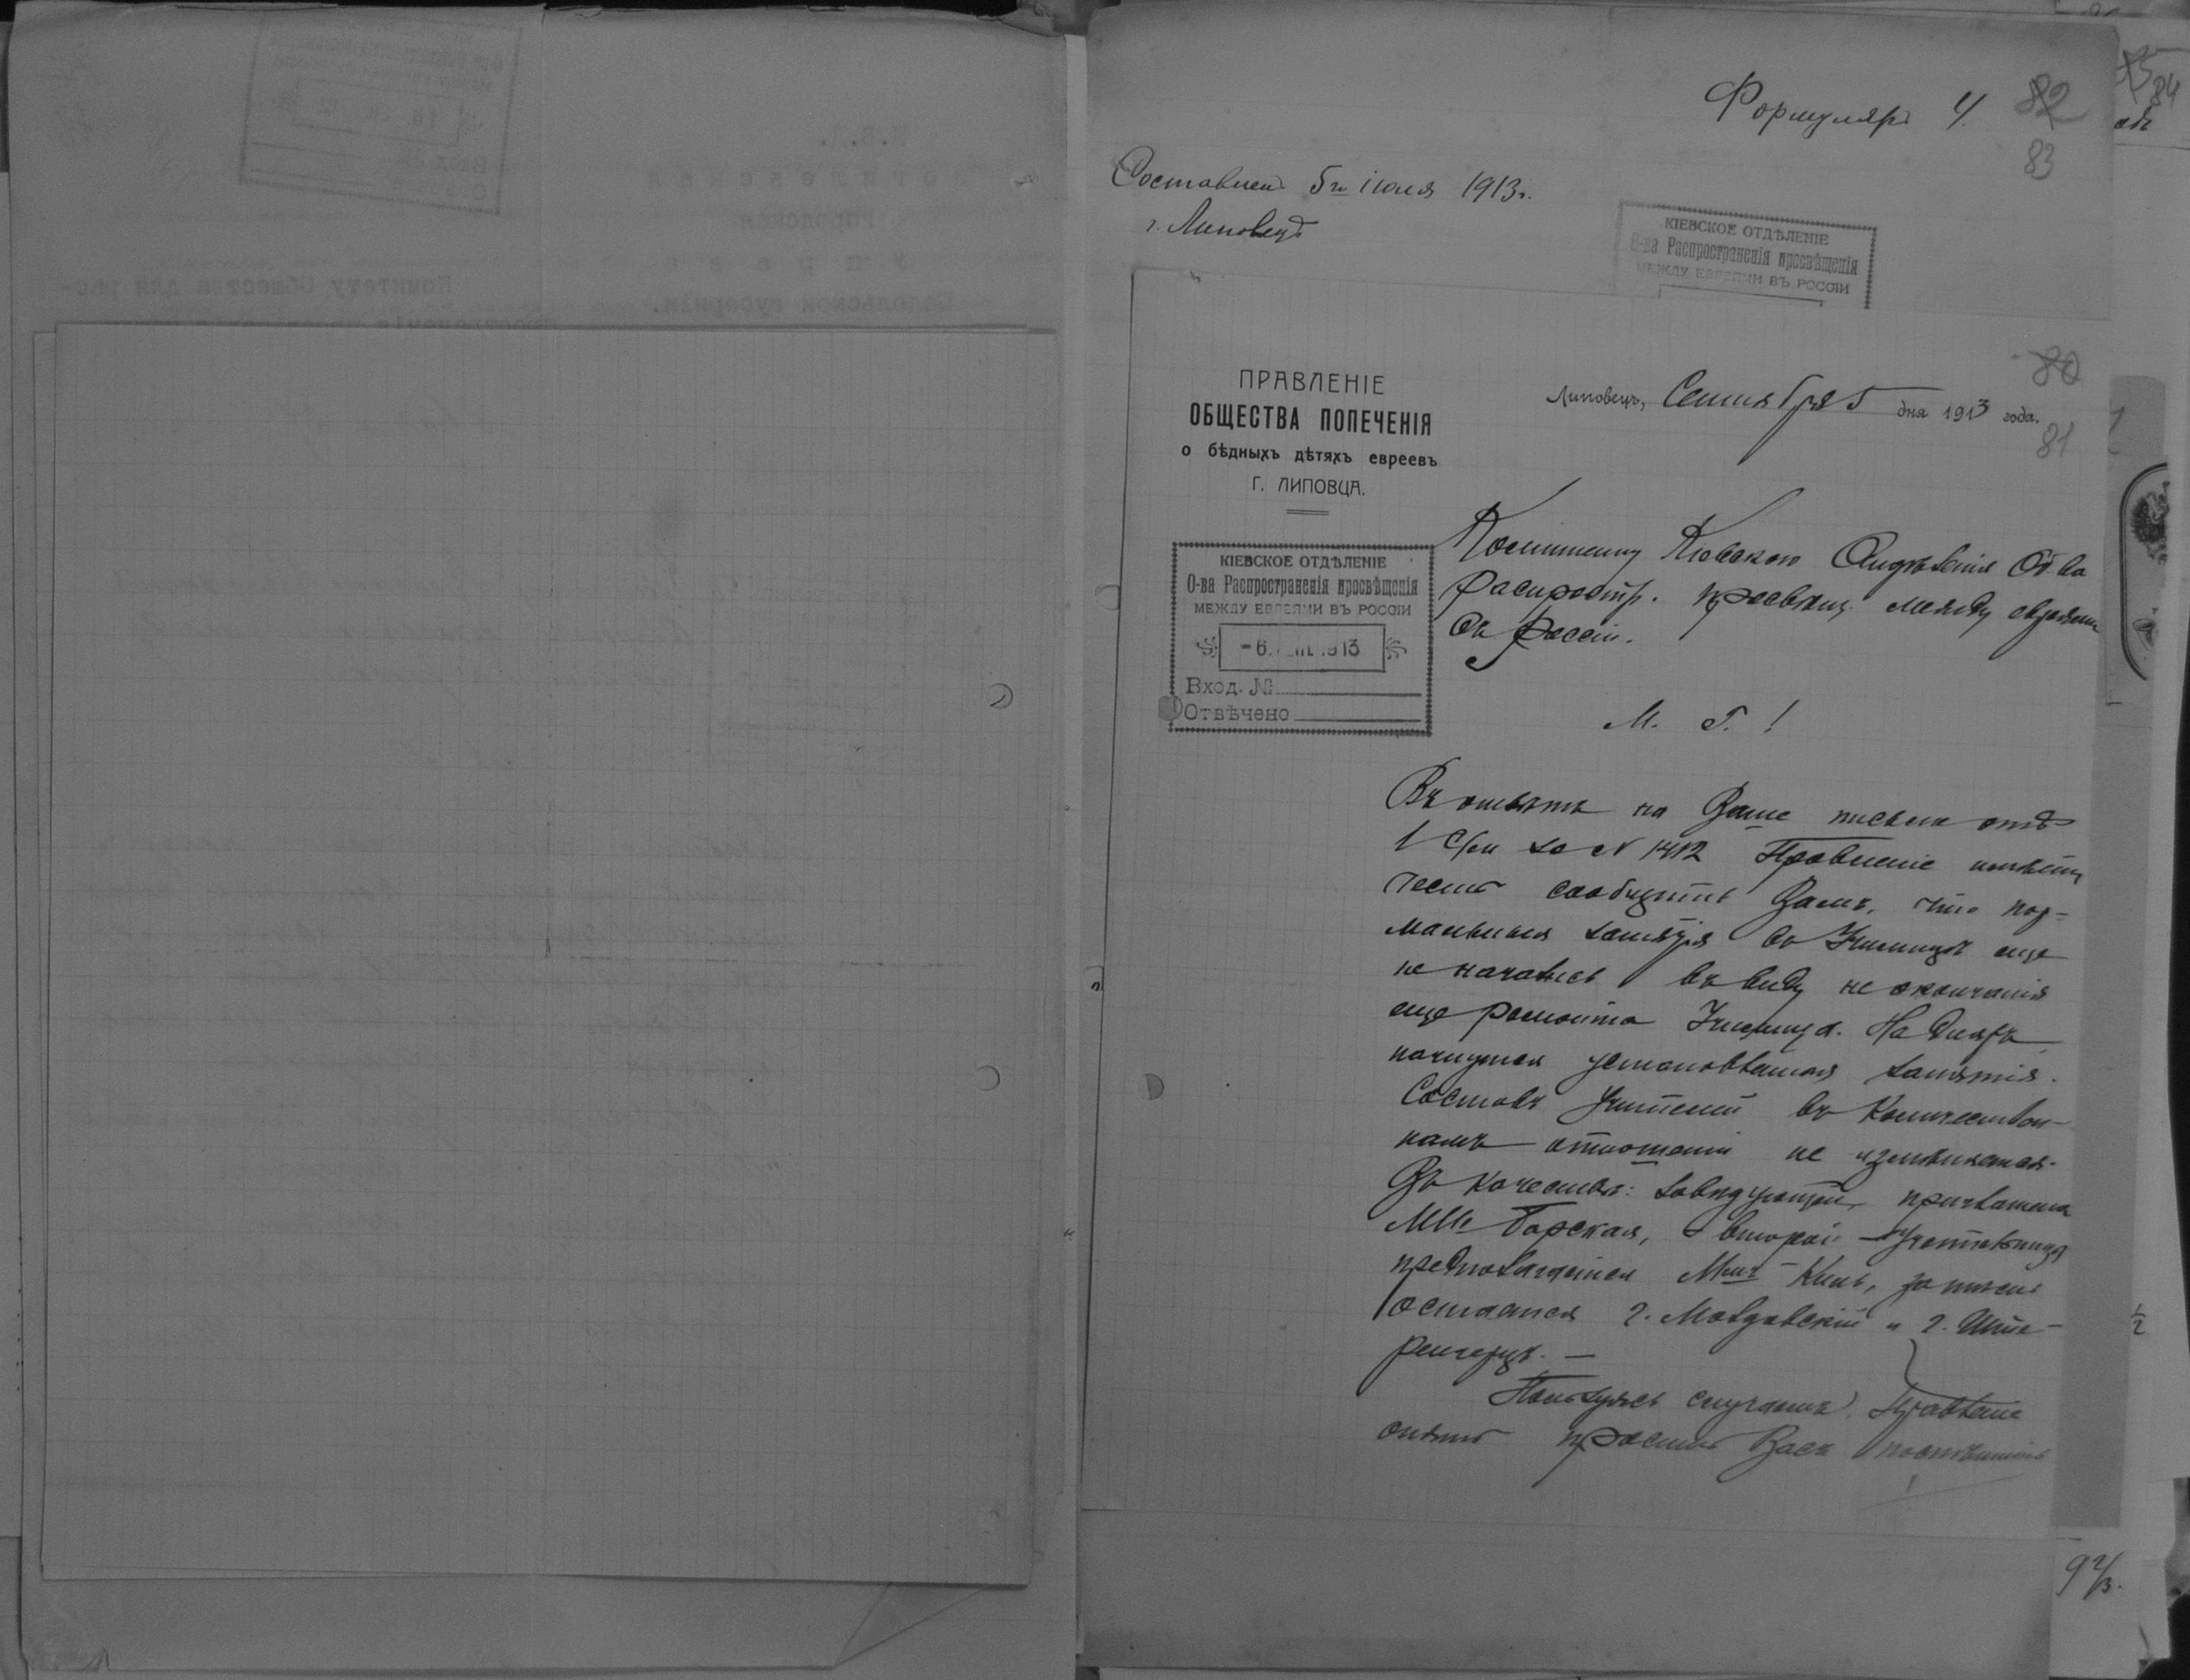 Формуляръ
82
83
Составленъ 5го іюля 1913 г.
г. Липовецъ
КІЕВСКОЕ ОТДѢЛЕНІЕ
О-ва Распространенія просвѣщенія
МЕЖДУ ЕВРЕЯМИ ВЪ РОССІИ
80
81
ПРАВЛЕНІЕ
ОБЩЕСТВА ПОПЕЧЕНІЯ
о бѣдныхъ дѣтяхъ евреевъ
Г. ЛИПОВЦА.
Липовецъ, Сентября 5 дня 1913 года.
КІЕВСКОЕ ОТДѢЛЕНІЕ
О-ва Распространенія просвѣщенія
МЕЖДУ ЕВРЕЯМИ ВЪ РОССІИ
Вход. №
Отвѣчено
Комитету Кіевскаго Отдѣленія Об-ва
Распростр. просвѣщ. между евреями
въ Россіи.
М. Г.!
Въ отвѣтъ на Ваше письмо отъ
1 с/м за N 1412 Правленіе имѣетъ
честь сообщить Вамъ, что нор=
мальныя занятія въ Училищѣ еще
не начались въ виду не окончанія
еще ремонта Училища. На дняхъ
начнутся установленныя занятія.
Составъ учителей въ количествен-
номъ отношеніи не измѣняется.
Въ качествѣ завѣдующей приглашена
Mlle Барская, второй учительницей
предполагается Кинь, за тѣмъ
остается г. Молдавскій и г. Ште-
ренгерцъ. —
Пользуясь случаемъ, Правленіе
опять проситъ Васъ поспѣшить